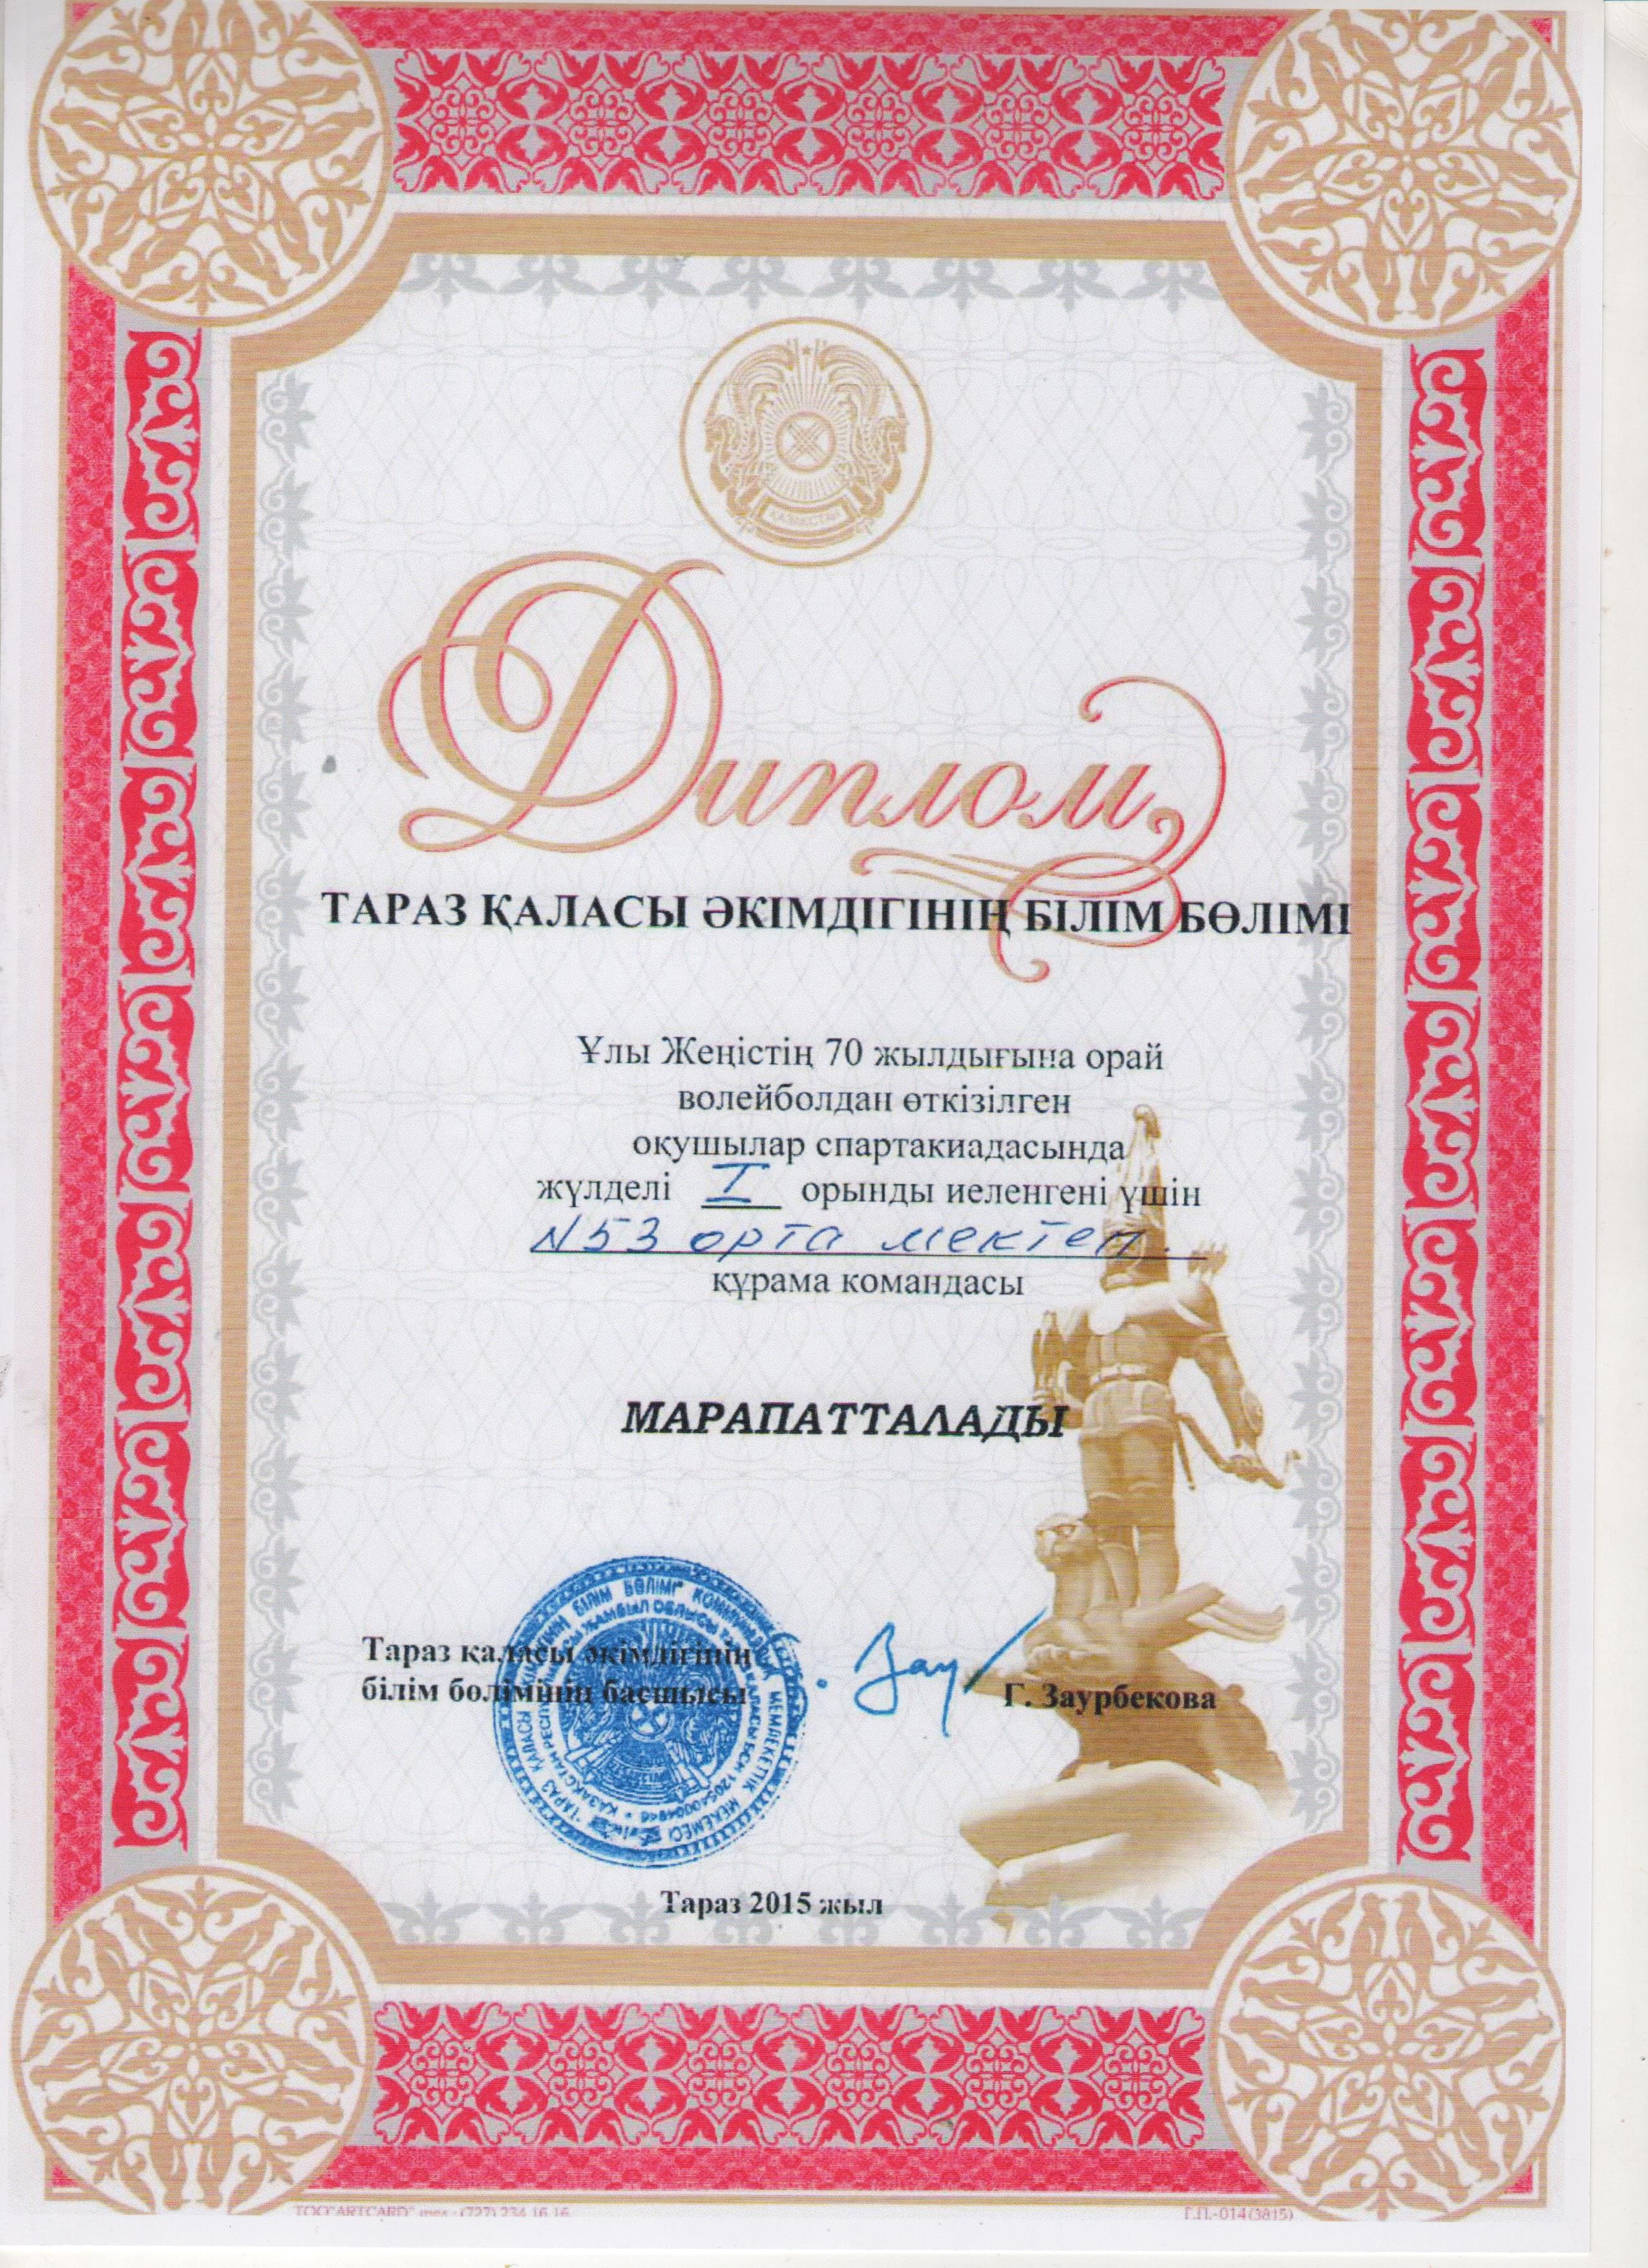 ҚАЗАҚСТАН
Диплом
ТАРАЗ ҚАЛАСЫ ӘКІМДІГІНІҢ БІЛІМ БӨЛІМІ
Ұлы Жеңістің 70 жылдығына орай
волейболдан өткізілген
оқушылар спартакиадасында
жүлделі I орынды иеленгені үшін
№53 орта мектеп.
құрама командасы
МАРАПАТТАЛАДЫ
Тараз қаласы әкімдігінің
білім бөлімінің басшысы
Г. Заурбекова
Тараз 2015 жыл
ТОО "ARTCARD" тел.: (727) 234 16 16
Г.П.-014 (3815)